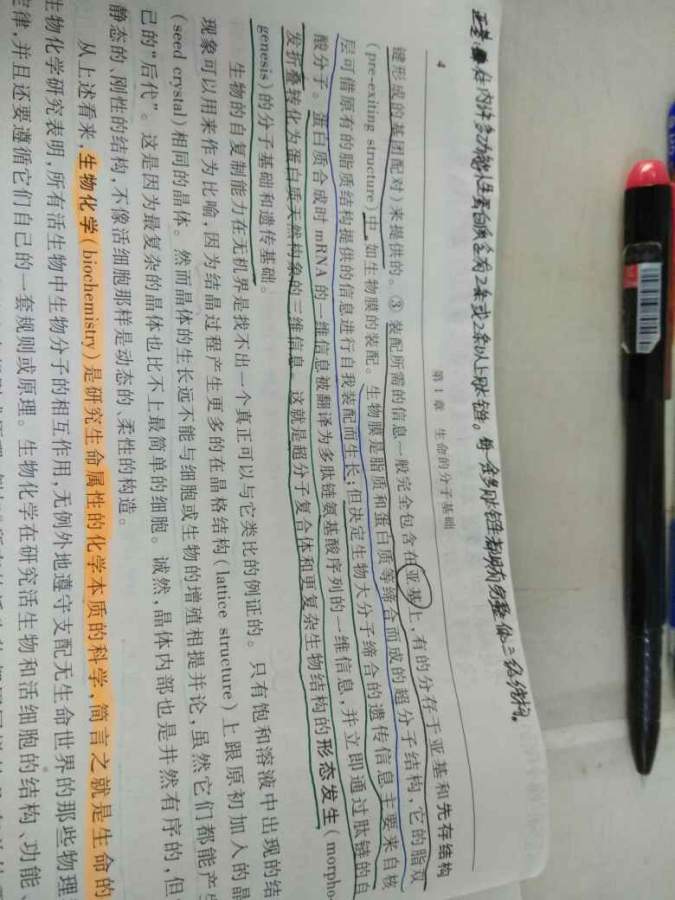 亚基:在内许多功能性蛋白质含有2条或2条以上肽链。每一条多肽链都有自己的三级结构。
4 第1章 生命的分子基础
键形成的基团配对)来提供的。③ 装配所需的信息一般完全包含在亚基上,有的分存于亚基和先存结构
(pre-exiting structure)中,如生物膜的装配。生物膜是脂质和蛋白质等缔合而成的超分子结构,它的脂双
层可借原有的脂质结构提供的信息进行自我装配而生长;但决定生物大分子缔合的遗传信息主要来自核
酸分子。蛋白质合成时 mRNA 的一维信息被翻译为多肽链氨基酸序列的一维信息,并立即通过肽链的自
发折叠转化为蛋白质天然构象的三维信息。这就是超分子复合体和更复杂生物结构的形态发生(morpho-
genesis)的分子基础和遗传基础。
生物的自复制能力在无机界是找不出一个真正可以与它类比的例证的。只有饱和溶液中出现的结
现象可以用来作为比喻,因为结晶过程产生更多的在晶格结构(lattice structure)上跟原初加入的晶
(seed crystal)相同的晶体。然而晶体的生长远不能与细胞或生物的增殖相提并论,虽然它们都能产生
己的“后代”。这是因为最复杂的晶体也比不上最简单的细胞。诚然,晶体内部也是井然有序的,但
静态的、刚性的结构,不像活细胞那样是动态的、柔性的构造。
从上述看来,生物化学(biochemistry)是研究生命属性的化学本质的科学,简言之就是生命的
生物化学研究表明,所有活生物中生物分子的相互作用,无例外地遵守支配无生命世界的那些物理
定律,并且还要遵循它们自己的一套规则或原理。生物化学在研究活生物和活细胞的结构、功能、